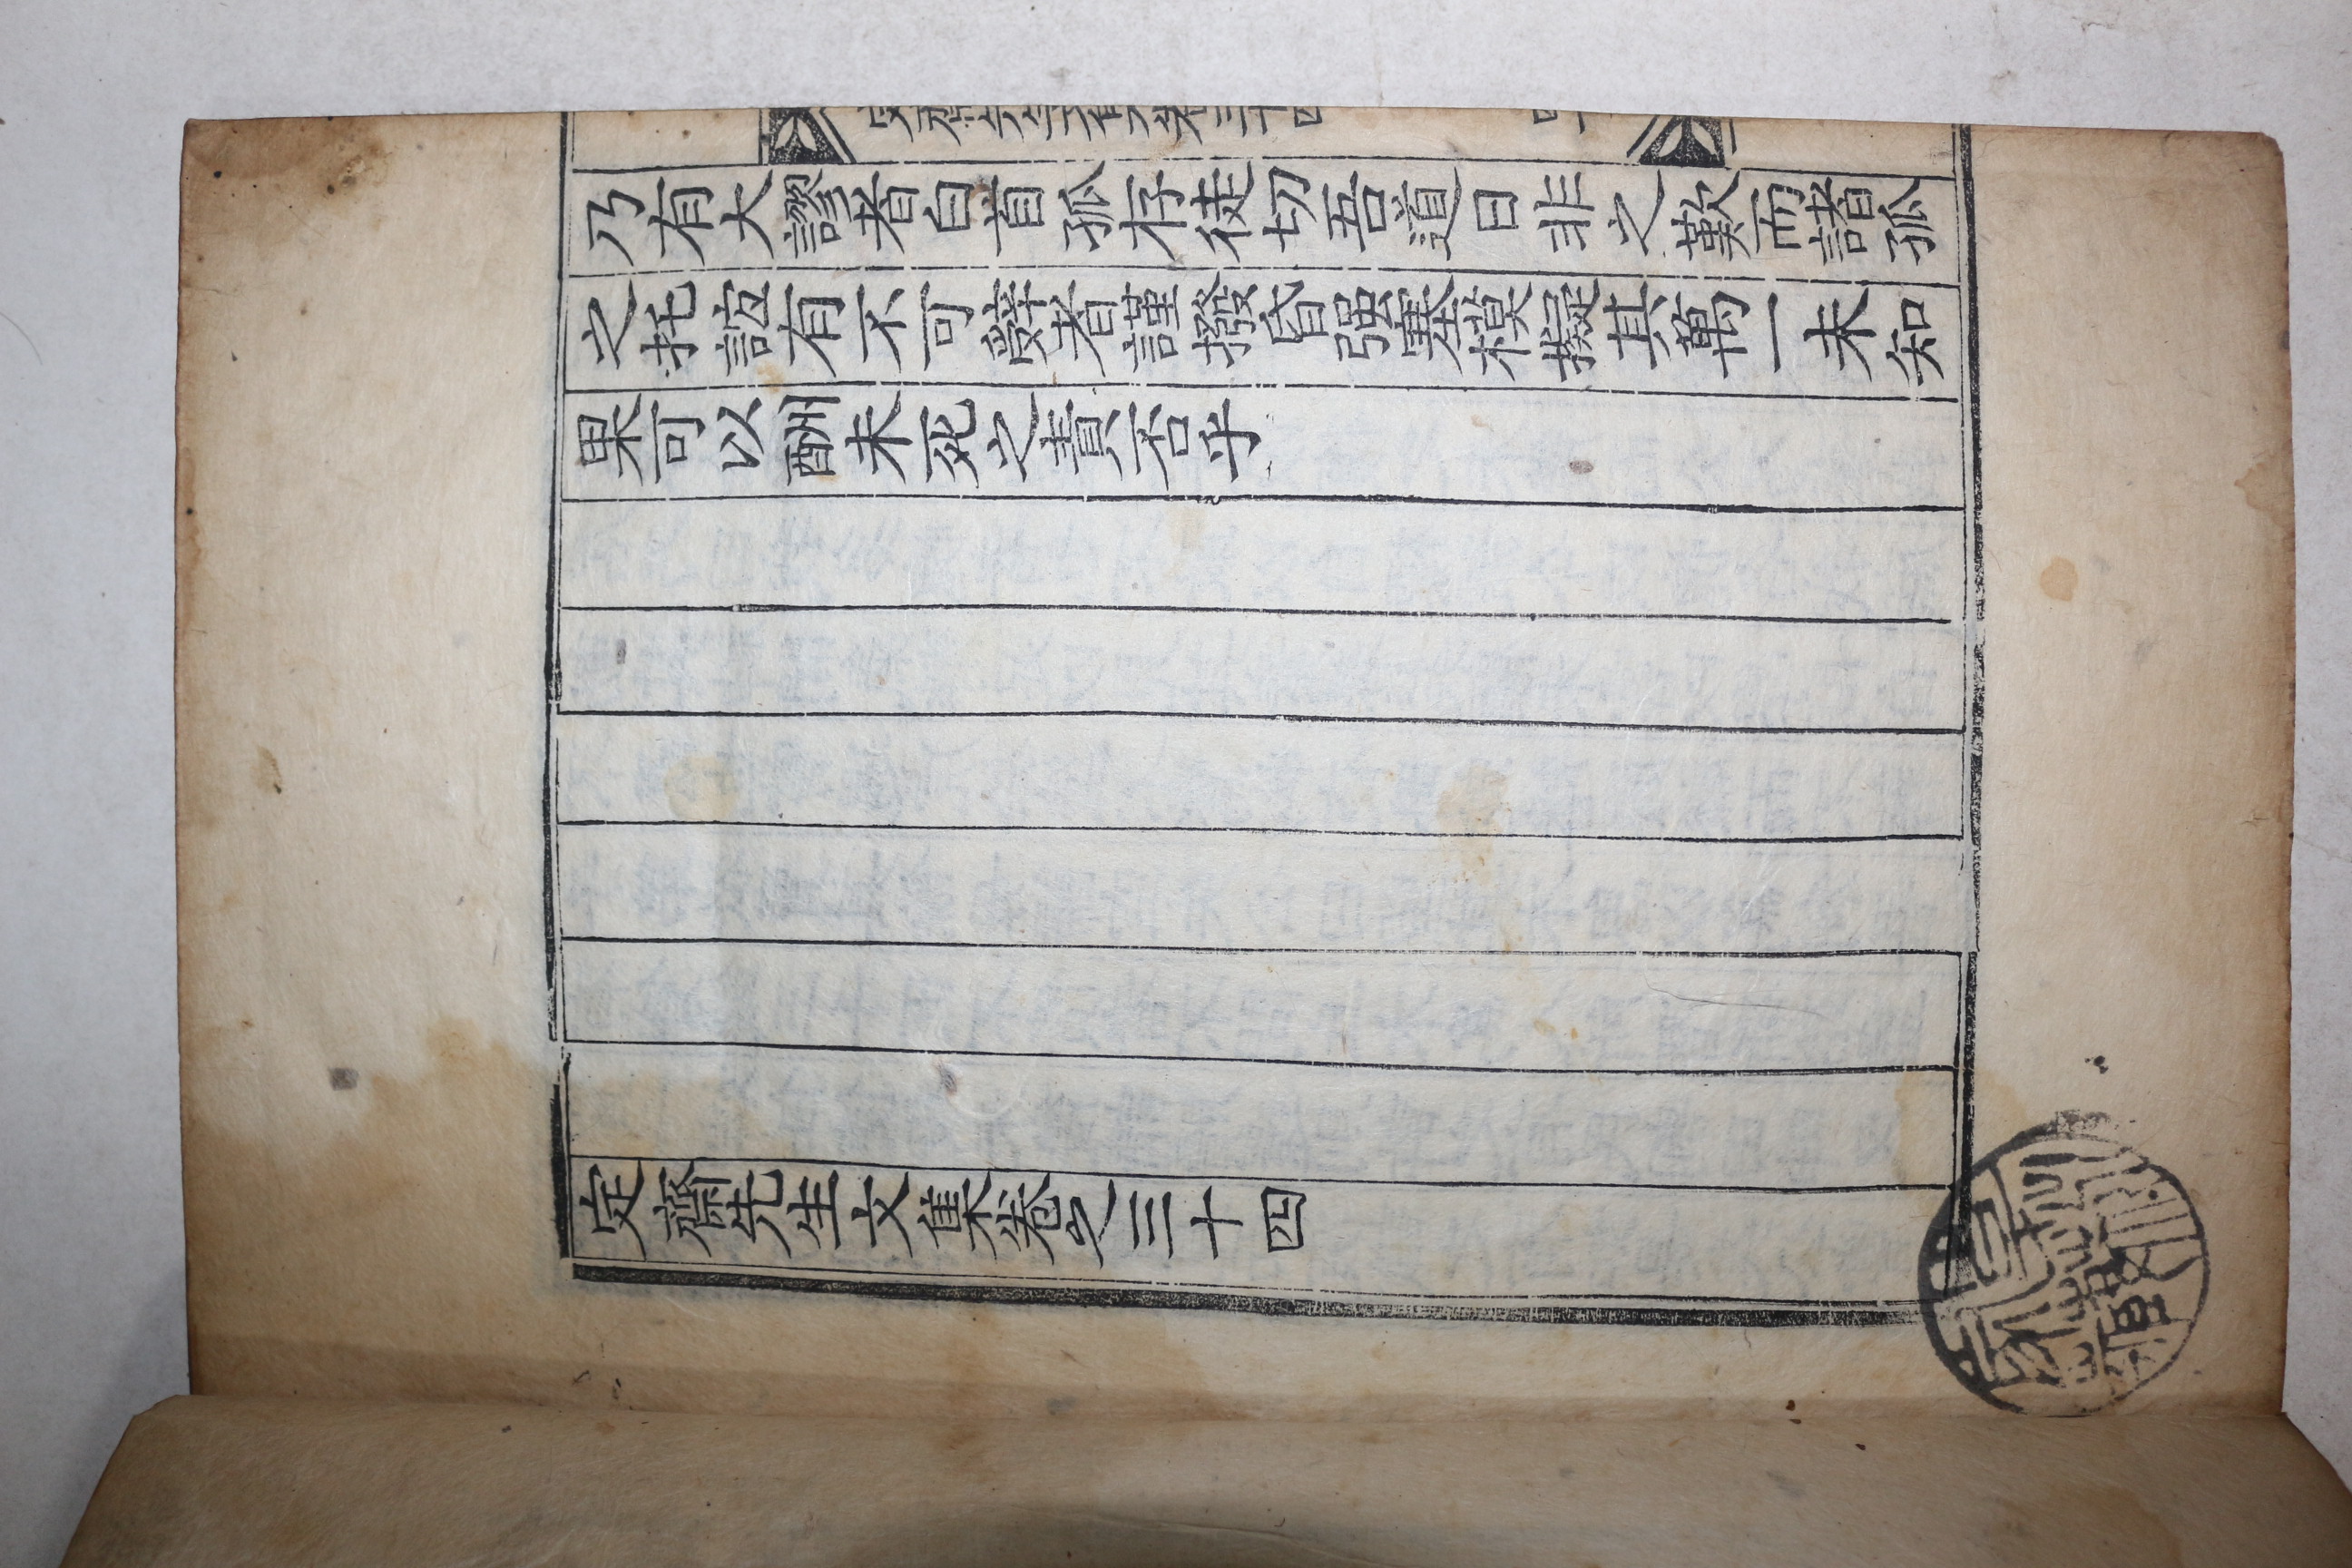 乃有大謬者白首孤存徒切吾道日非之歎而諸孤
之托誼有不可孤者謹撥昏強塞模擬其萬一未知
果可以酬未死之責否乎
定齋先生文集卷之三十四